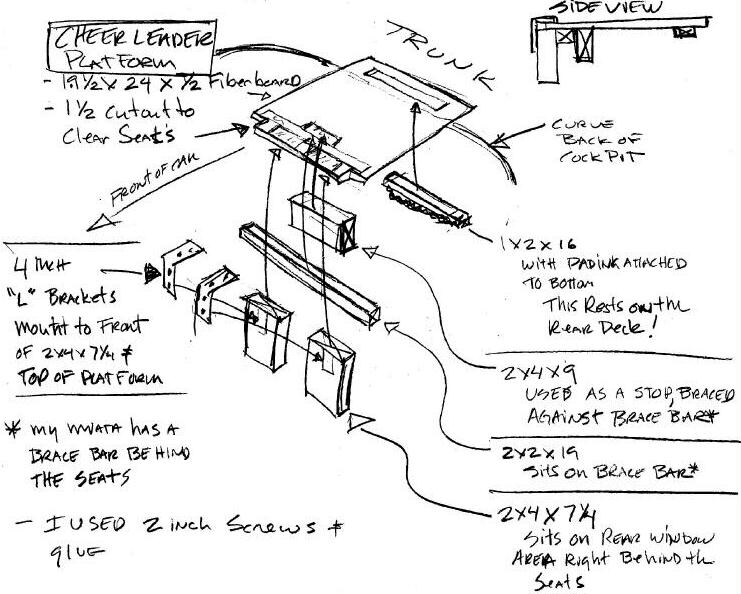 CHEER LEADER
PLATFORM
- 19 1/2 X 24 X 1/2 Fiberboard
- 1 1/2 Cutout to
Clear Seats
TRUNK
SIDE VIEW
CURVE
BACK OF
COCKPIT
FRONT OF CAR
4 INCH
"L" BRACKETS
MOUNT TO FRONT
OF 2X4X7 1/4 &
TOP OF PLATFORM
* MY MIATA HAS A
BRACE BAR BEHIND
THE SEATS
- I USED 2 inch Screws &
glue
1X2X16
WITH PADINK ATTACHED
TO BOTTOM
THIS RESTS ON THE
REAR DECK!
2X4X9
USED AS A STOP, BRACED
AGAINST BRACE BAR*
2X2X19
SITS ON BRACE BAR*
2X4X7 1/4
SITS ON REAR WINDOW
AREA RIGHT BEHIND THE
SEATS